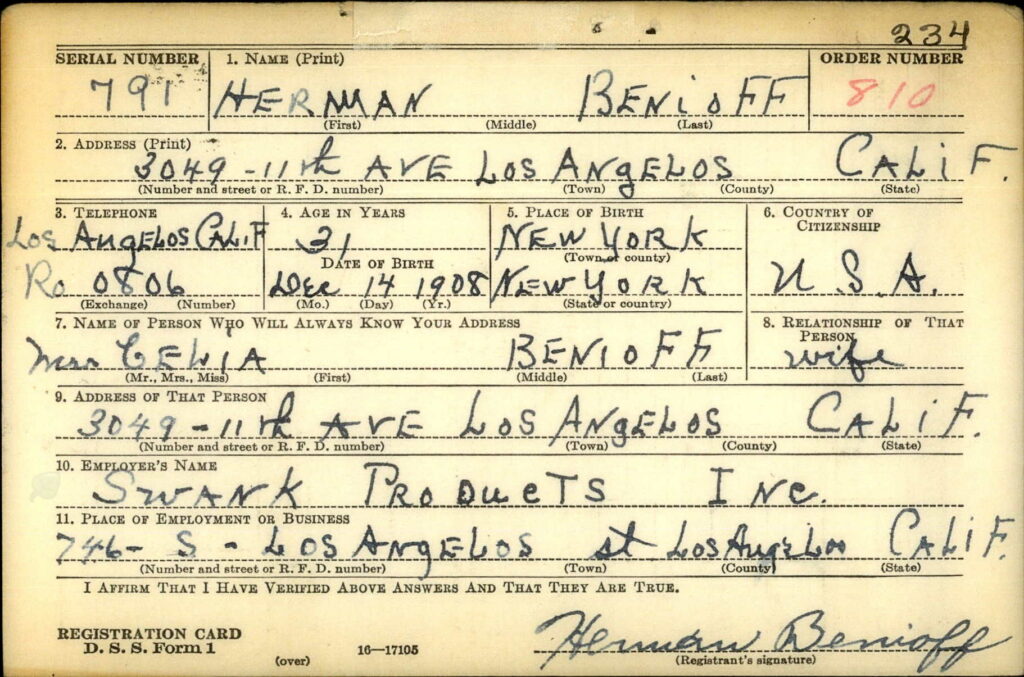 234
SERIAL NUMBER 1. NAME (Print) ORDER NUMBER
791 HERMAN BENIOFF 810
(First) (Middle) (Last)
2. ADDRESS (Print)
3049 - 11th AVE LOS ANGELOS CALIF.
(Number and street or R. F. D. number) (Town) (County) (State)
3. TELEPHONE 4. AGE IN YEARS 5. PLACE OF BIRTH 6. COUNTRY OF CITIZENSHIP
Los ANGELOS CALIF 31 NEW YORK
DATE OF BIRTH (Town or county)
Ro 0806 Dec 14 1908 NEW YORK U.S.A.
(Exchange) (Number) (Mo.) (Day) (Yr.) (State or country)
7. NAME OF PERSON WHO WILL ALWAYS KNOW YOUR ADDRESS 8. RELATIONSHIP OF THAT PERSON
Mrs CELIA BENIOFF wife
(Mr., Mrs., Miss) (First) (Middle) (Last)
9. ADDRESS OF THAT PERSON
3049 - 11th AVE LOS ANGELOS CALIF.
(Number and street or R. F. D. number) (Town) (County) (State)
10. EMPLOYER'S NAME
SWANK PRODUCTS INC.
11. PLACE OF EMPLOYMENT OR BUSINESS
746 - S - LOS ANGELOS st Los Angelos CALIF.
(Number and street or R. F. D. number) (Town) (County) (State)
I AFFIRM THAT I HAVE VERIFIED ABOVE ANSWERS AND THAT THEY ARE TRUE.
REGISTRATION CARD
D. S. S. Form 1 (over) 16—17105 Herman Benioff
(Registrant's signature)